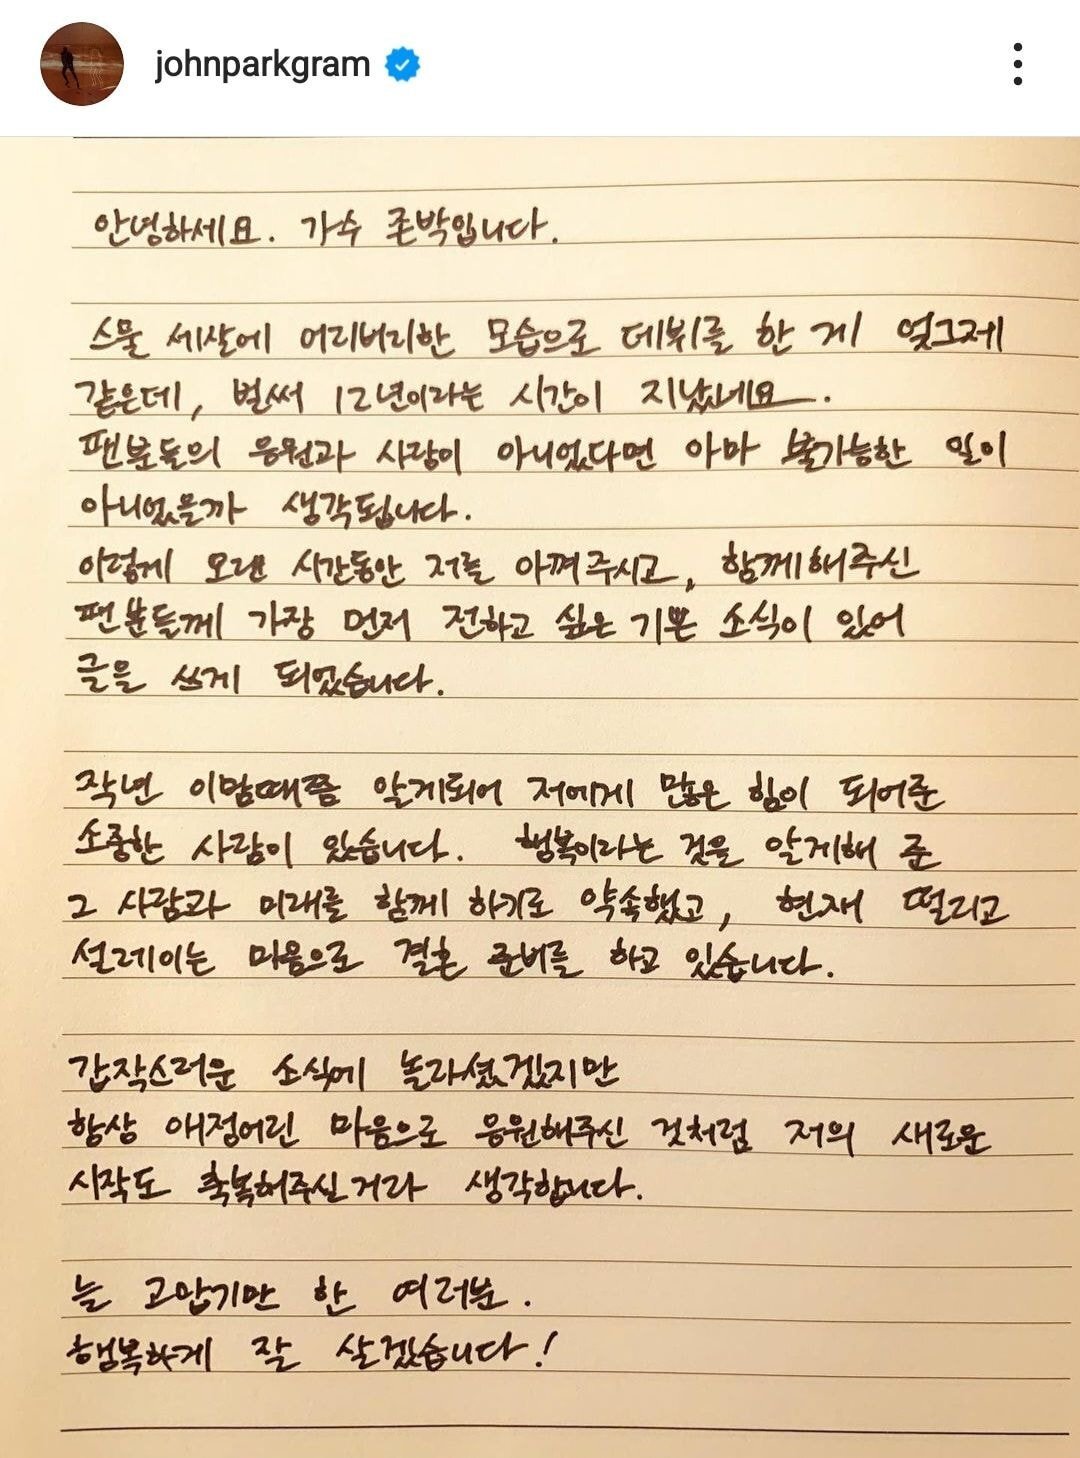 johnparkgram
안녕하세요. 가수 존박입니다.
스물 세살에 어리버리한 모습으로 데뷔를 한 게 엊그제
같은데, 벌써 12년이라는 시간이 지났네요.
팬분들의 응원과 사랑이 아니었다면 아마 불가능한 일이
아니었을까 생각됩니다.
이렇게 오랜 시간동안 저를 아껴주시고, 함께해주신
팬분들께 가장 먼저 전하고 싶은 기쁜 소식이 있어
글을 쓰게 되었습니다.
작년 이맘때쯤 알게되어 저에게 많은 힘이 되어준
소중한 사람이 있습니다. 행복이라는 것을 알게해 준
그 사람과 미래를 함께 하기로 약속했고, 현재 떨리고
설레이는 마음으로 결혼 준비를 하고 있습니다.
갑작스러운 소식에 놀라셨겠지만
항상 애정어린 마음으로 응원해주신 것처럼 저의 새로운
시작도 축복해주신거라 생각합니다.
늘 고맙기만 한 여러분.
행복하게 잘 살겠습니다!